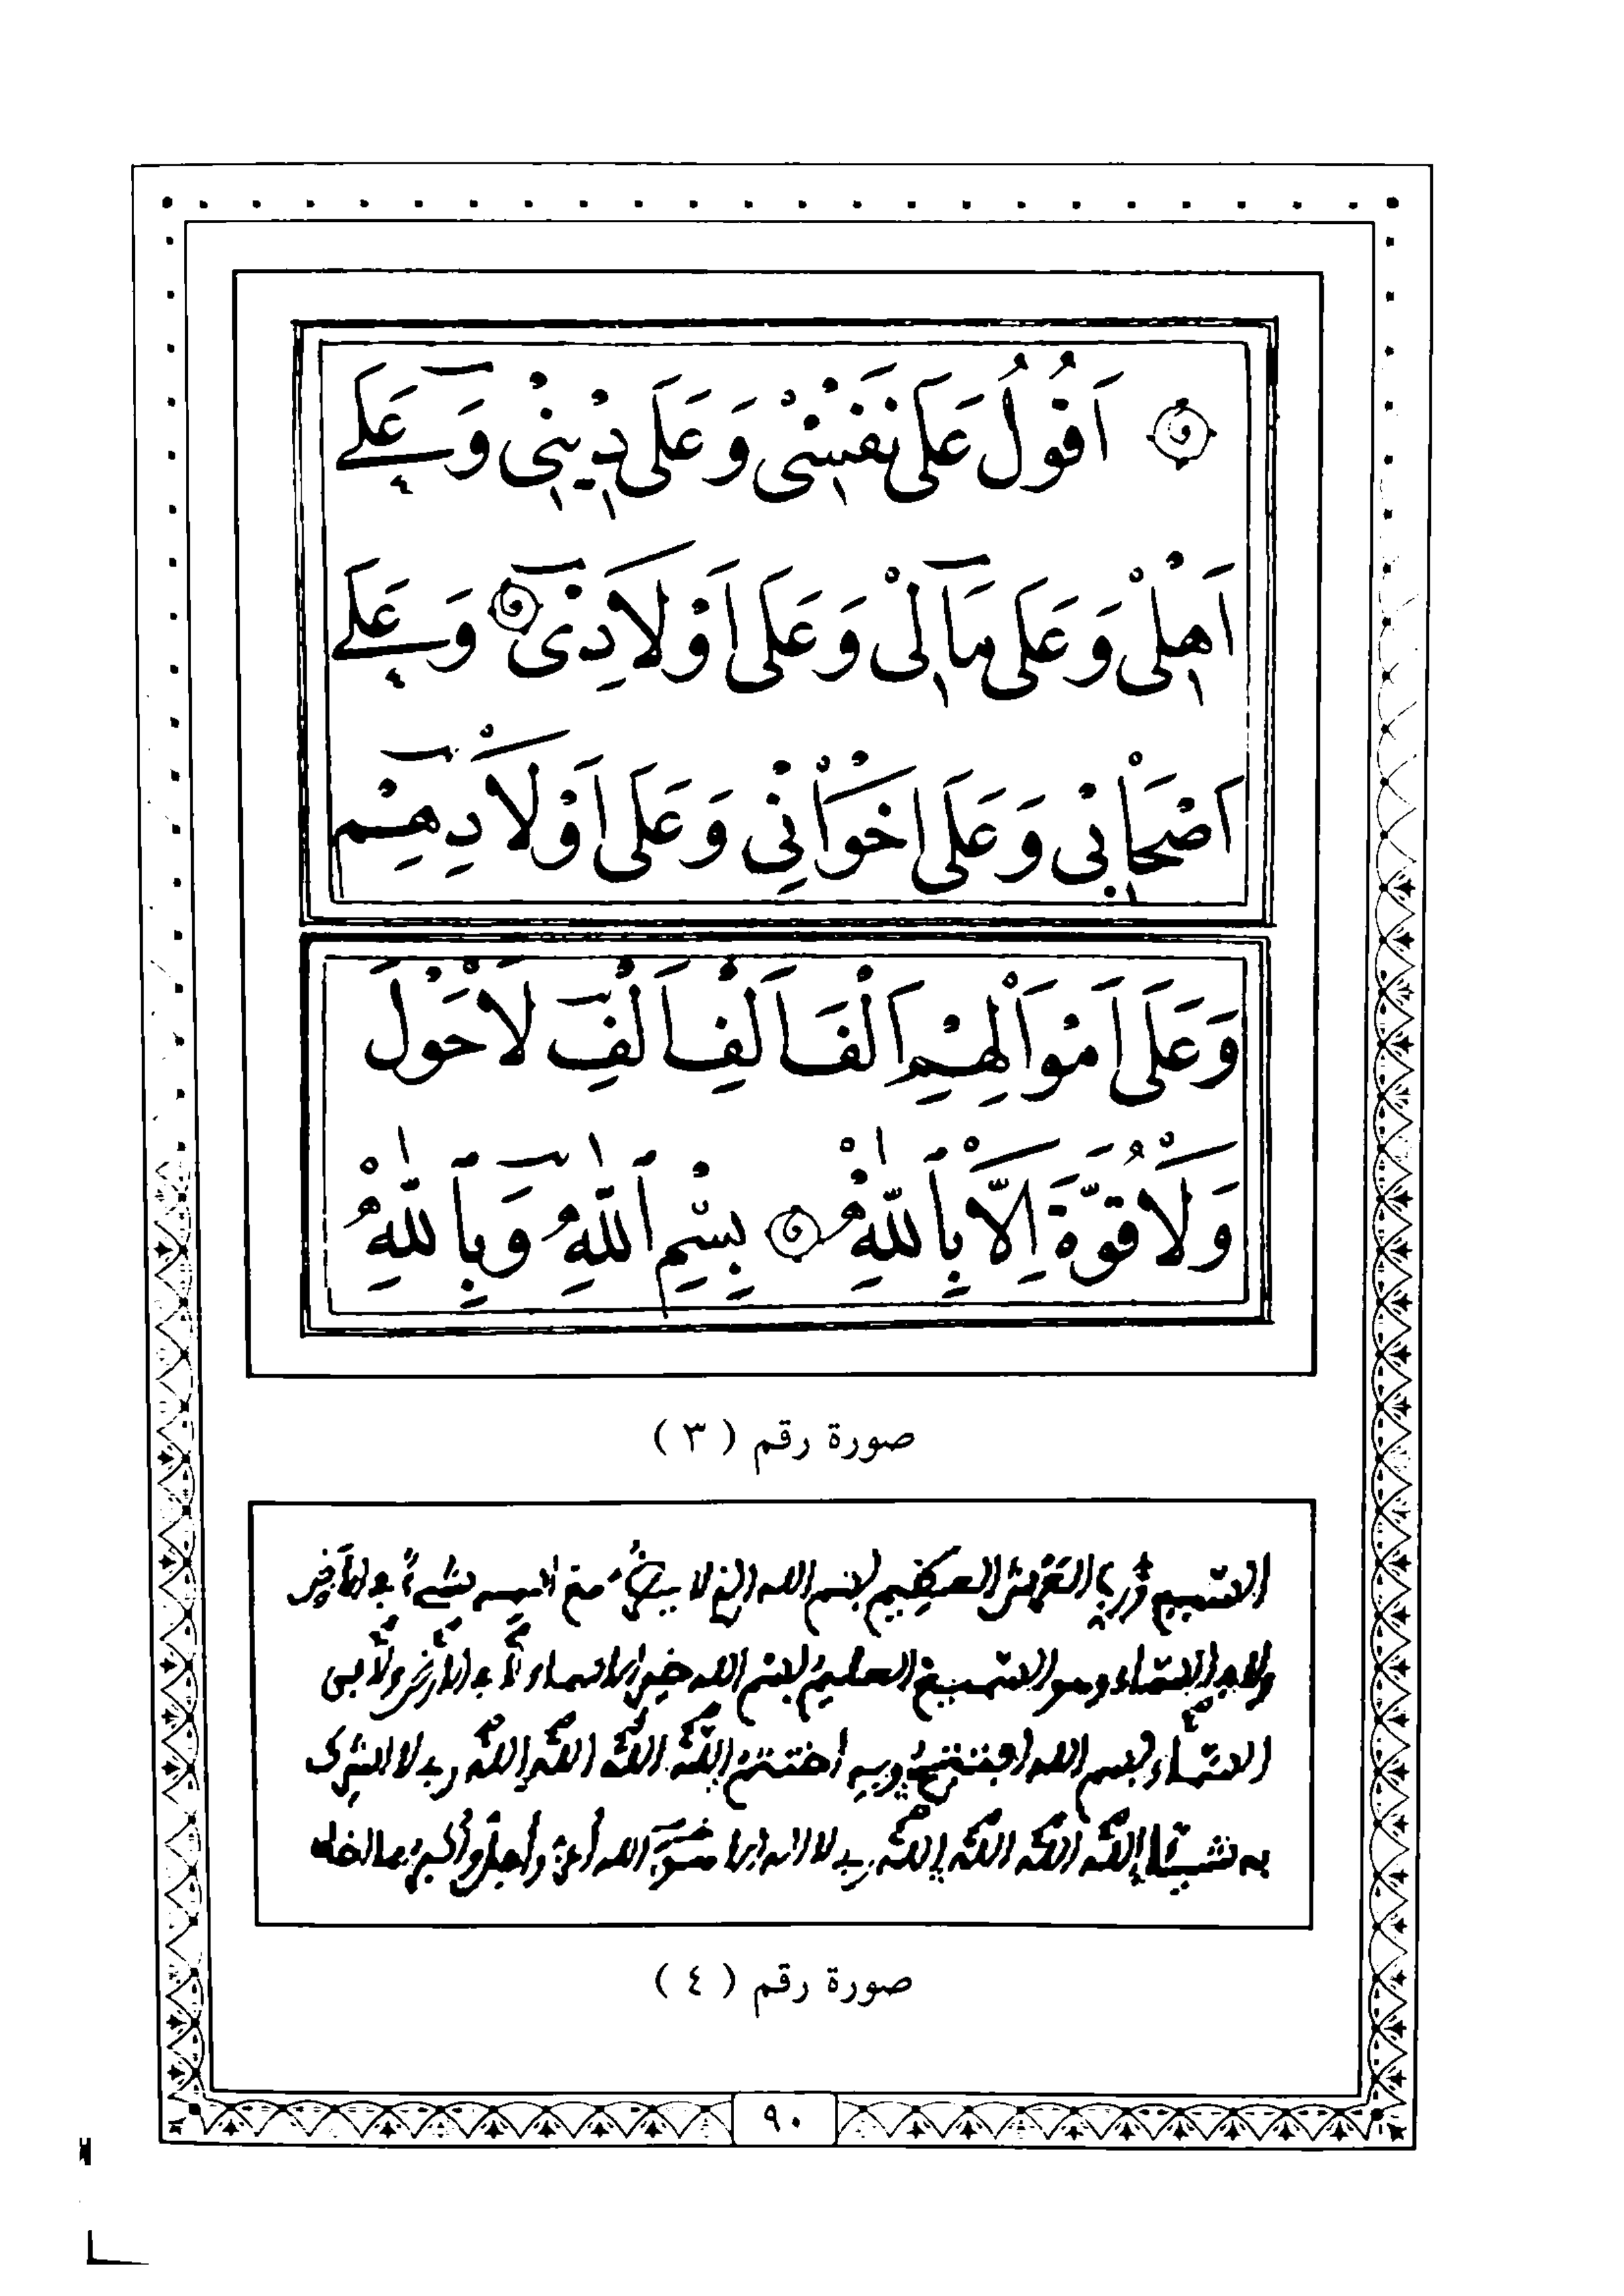 اَقُولُ عَلَى نَفْسِىْ وَعَلَى دِيْنِىْ وَعَلَے
اَهْلِىْ وَعَلَى مَالِىْ وَعَلَى اَوْلَادِىْ وَعَلَے
اَصْحَابِىْ وَعَلَى اِخْوَانِىْ وَعَلَى اَوْلَادِهِمْ
وَعَلَى اَمْوَالِهِمْ اَلْفَ اَلْفِ اَلْفِ لَاحَوْلَ
وَلَاقُوَّةَ اِلَّا بِاللّٰهِ بِسْمِ اللّٰهِ وَبِاللّٰهِ
صورة رقم ( ٣ )
السبع ورب العرش العظيم بسم الله الذي لا يضر مع اسمه شيء في الأرض
ولا في السماء وهو السميع العليم بسم الله خير الاسماء في الأرض وفي
السماء بسم الله افتتح وبه اختتم الله الله الله الله ربي لا اشرك
به شيئا الله الله الله الله ربي لا اله الا هو الله أعز وأجل وأكبر مما اخاف
صورة رقم ( ٤ )
٩٠